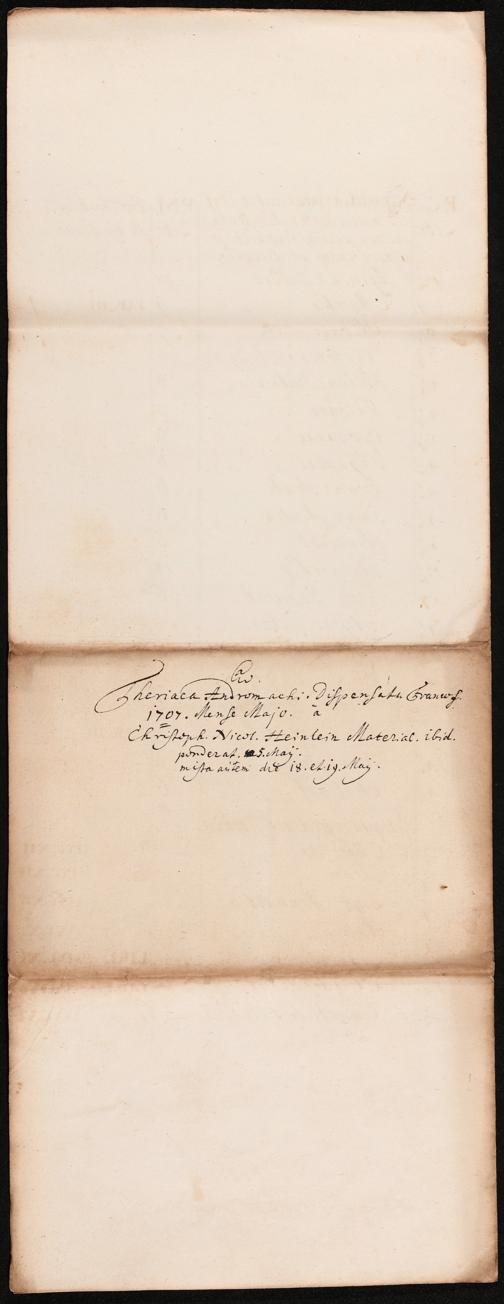 Theriaca Andromachi. Dispensata
1707. Mense Majo. à
Christoph. Nicol. Heinlein Material. ibid.
ponderat. 5. Maij.
mista autem die 18. et 19. Maij.